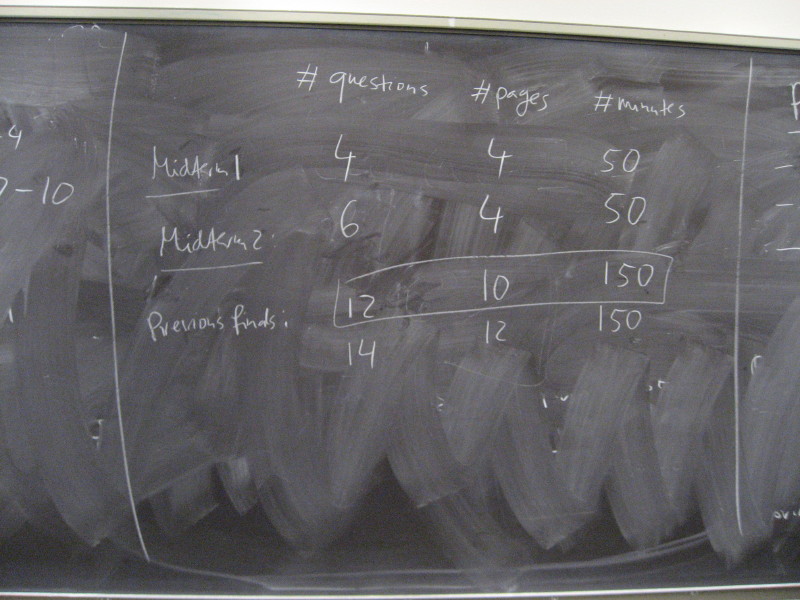 # questions #pages #minutes
Midterm1 4 4 50
Midterm2: 6 4 50
12 10 150
Previous finals: 12 150
14
4
-10